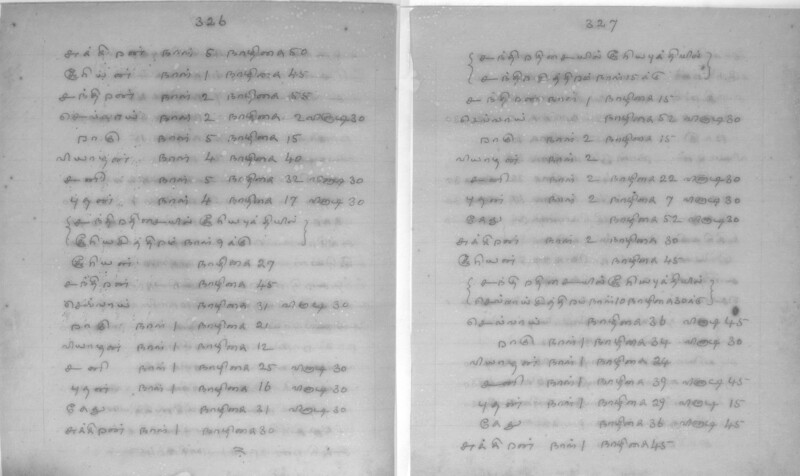 326
சுக்கிறன் நாள் 5 நாழிகை 50
சூரியன் நாள் 1 நாழிகை 45
சந்திறன் நாள் 2 நாழிகை 55
செவ்வாய் நாள் 2 நாழிகை 2 வினாடி 30
ராகு நாள் 5 நாழிகை 15
வியாழன் நாள் 4 நாழிகை 40
சனி நாள் 5 நாழிகை 32 வினாடி 30
புதன் நாள் 4 நாழிகை 17 வினாடி 30
சந்திறதிசையில் சூரியபுத்தியில்
சூரியசித்திரம் நாள் 9க்கு
சூரியன் நாழிகை 27
சந்திறன் நாழிகை 45
செவ்வாய் நாழிகை 31 வினாடி 30
ராகு நாள் 1 நாழிகை 21
வியாழன் நாள் 1 நாழிகை 12
சனி நாள் 1 நாழிகை 25 வினாடி 30
புதன் நாள் 1 நாழிகை 16 வினாடி 30
கேது நாழிகை 31 வினாடி 30
சுக்கிறன் நாள் 1 நாழிகை 30
327
சந்திறதிசையில் சூரியபுத்தியில்
சந்திரசித்திரம் நாள் 15க்கு
சந்திறன் நாள் 1 நாழிகை 15
செவ்வாய் நாழிகை 52 வினாடி 30
ராகு நாள் 2 நாழிகை 15
வியாழன் நாள் 2
சனி நாள் 2 நாழிகை 22 வினாடி 30
புதன் நாள் 2 நாழிகை 7 வினாடி 30
கேது நாழிகை 52 வினாடி 30
சுக்கிறன் நாள் 2 நாழிகை 30
சூரியன் நாழிகை 45
சந்திறதிசையில் சூரியபுத்தியில்
செவ்வாய்சித்திரம் நாள் 10 நாழிகை 30க்கு
செவ்வாய் நாழிகை 36 வினாடி 45
ராகு நாள் 1 நாழிகை 34 வினாடி 30
வியாழன் நாள் 1 நாழிகை 24
சனி நாள் 1 நாழிகை 39 வினாடி 45
புதன் நாள் 1 நாழிகை 29 வினாடி 15
கேது நாழிகை 36 வினாடி 45
சுக்கிறன் நாள் 1 நாழிகை 45